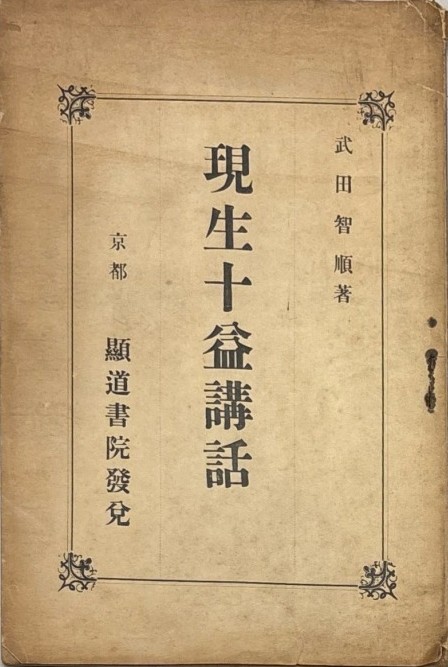 武田智順著
現生十益講話
京都 顯道書院發兌